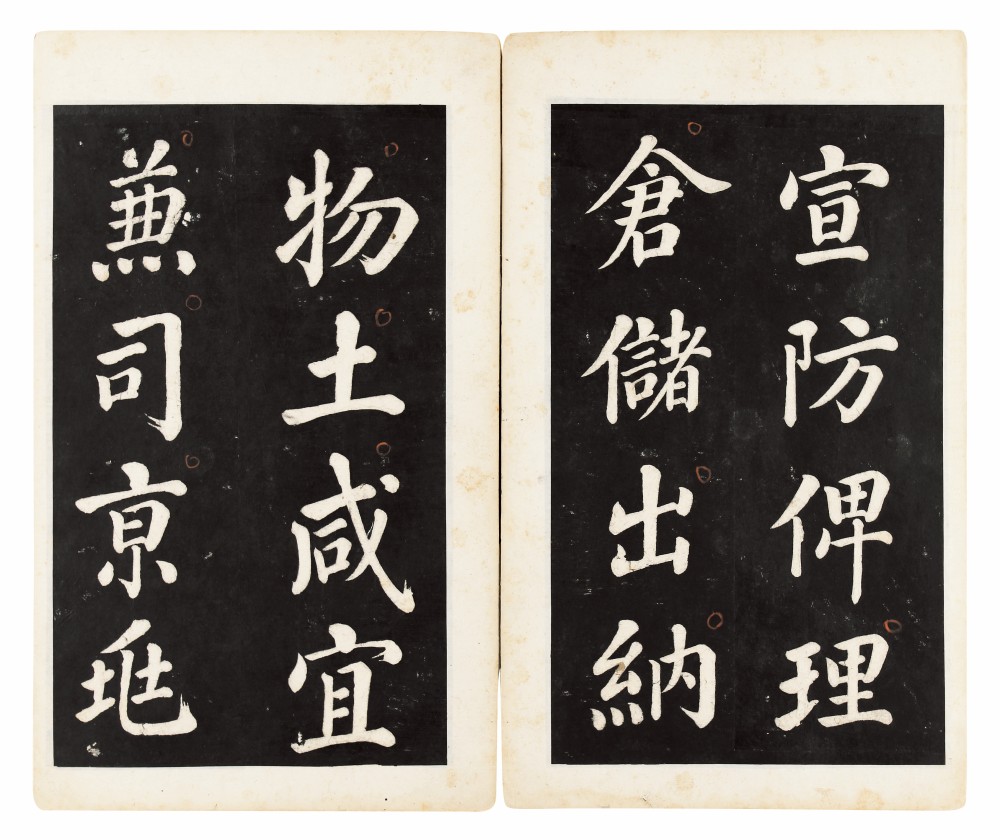 宣防俾理
倉儲出納
物土咸宜
兼司亰坻